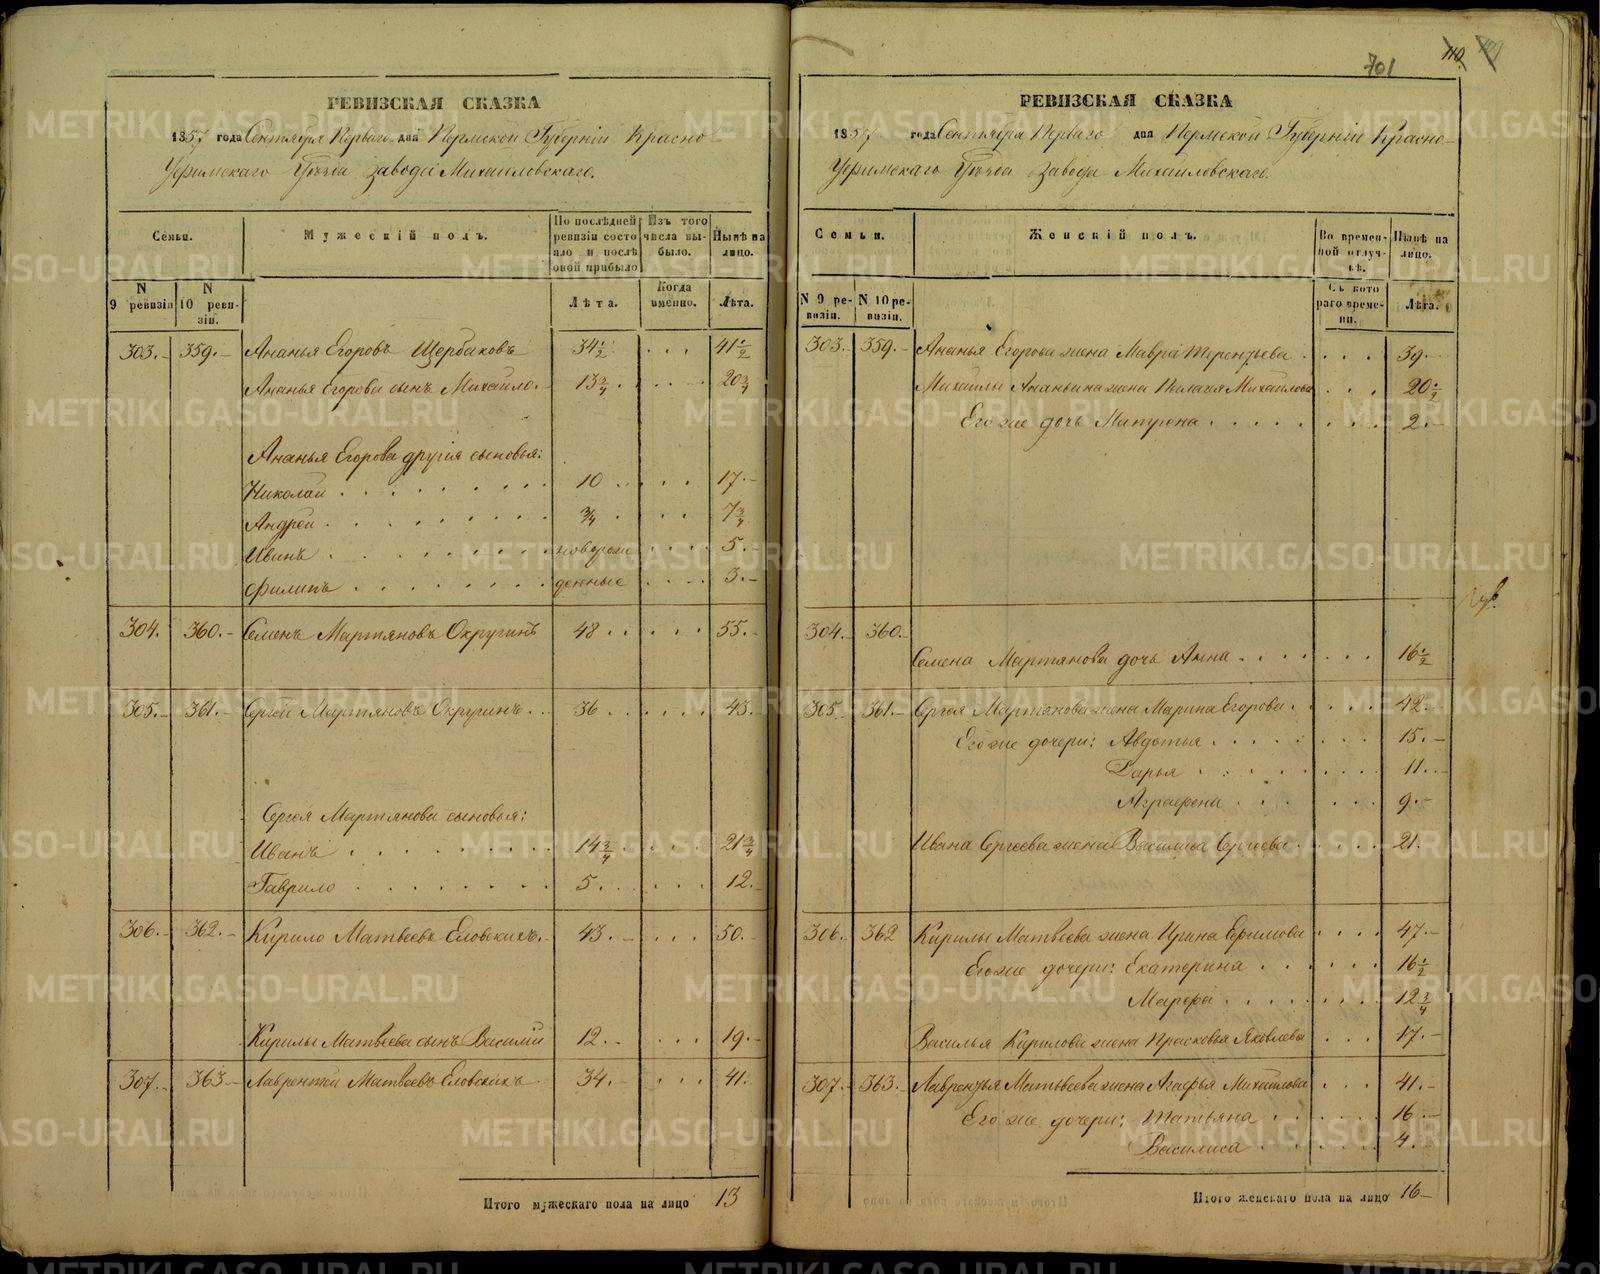 РЕВИЗСКАЯ СКАЗКА
1857 года Сентября Перваго дня Пермской Губерніи Красно-
Уфимскаго Уѣзда завода Михайловскаго.
Семьи.
Мужескій полъ.
По послѣдней ревизіи состояло и послѣ оной прибыло
Изъ того числа выбыло.
Нынѣ на лицо.
N 9 ревизіи
N 10 ревизіи.
Лѣта.
Когда именно.
Лѣта.
303. 359. Ананья Егоровъ Щербаковъ 34½ 41½
Ананья Егорова сынъ Михайло. 13¾ 20¾
Ананья Егорова другія сыновья:
Николай 10 17
Андрей ¾ 7¾
Иванъ новорож 5
Филипъ денные 3
304. 360. Семенъ Мартяновъ Округинъ 48 55
305. 361. Сергѣй Мартяновъ Округинъ 36 43
Сергея Мартянова сыновья:
Иванъ 14¾ 21¾
Гаврило 5 12
306. 362. Кирило Матвѣевъ Еловскихъ 43 50
Кирилы Матвѣева сынъ Василій 12 19
307. 363. Лаврентей Матвѣевъ Еловскихъ 34 41
Итого мужескаго пола на лицо 13
701 110
РЕВИЗСКАЯ СКАЗКА
1857 года Сентября Перваго дня Пермской Губерніи Красно-
Уфимскаго Уѣзда завода Михайловскаго.
Семьи.
Женскій полъ.
Во временной отлучкѣ.
Нынѣ на лицо.
N 9 ревизіи.
N 10 ревизіи.
Съ котораго времени.
Лѣта.
303. 359. Ананья Егорова жена Мавра Терентьева 39
Михайлы Ананьина жена Пелагея Михайлова 20½
Его же дочь Матрена 2
304. 360.
Семена Мартянова дочь Анна 16½
305 361. Сергея Мартянова жена Марина Егорова 42
Его же дочери: Авдотья 15
Дарья 11
Аграфена 9
Ивана Сергѣева жена Василиса Сергѣева 21
306. 362 Кирилы Матвѣева жена Ирина Ефимова 47
Его же дочери: Екатерина 16½
Марфа 12¾
Василья Кирилова жена Прасковья Яковлева 17
307. 363. Лаврентья Матвѣева жена Агафья Михайлова 41
Его же дочери: Татьяна 16
Василиса 4
Итого женскаго пола на лицо 16
METRIKI.GASO-URAL.RU